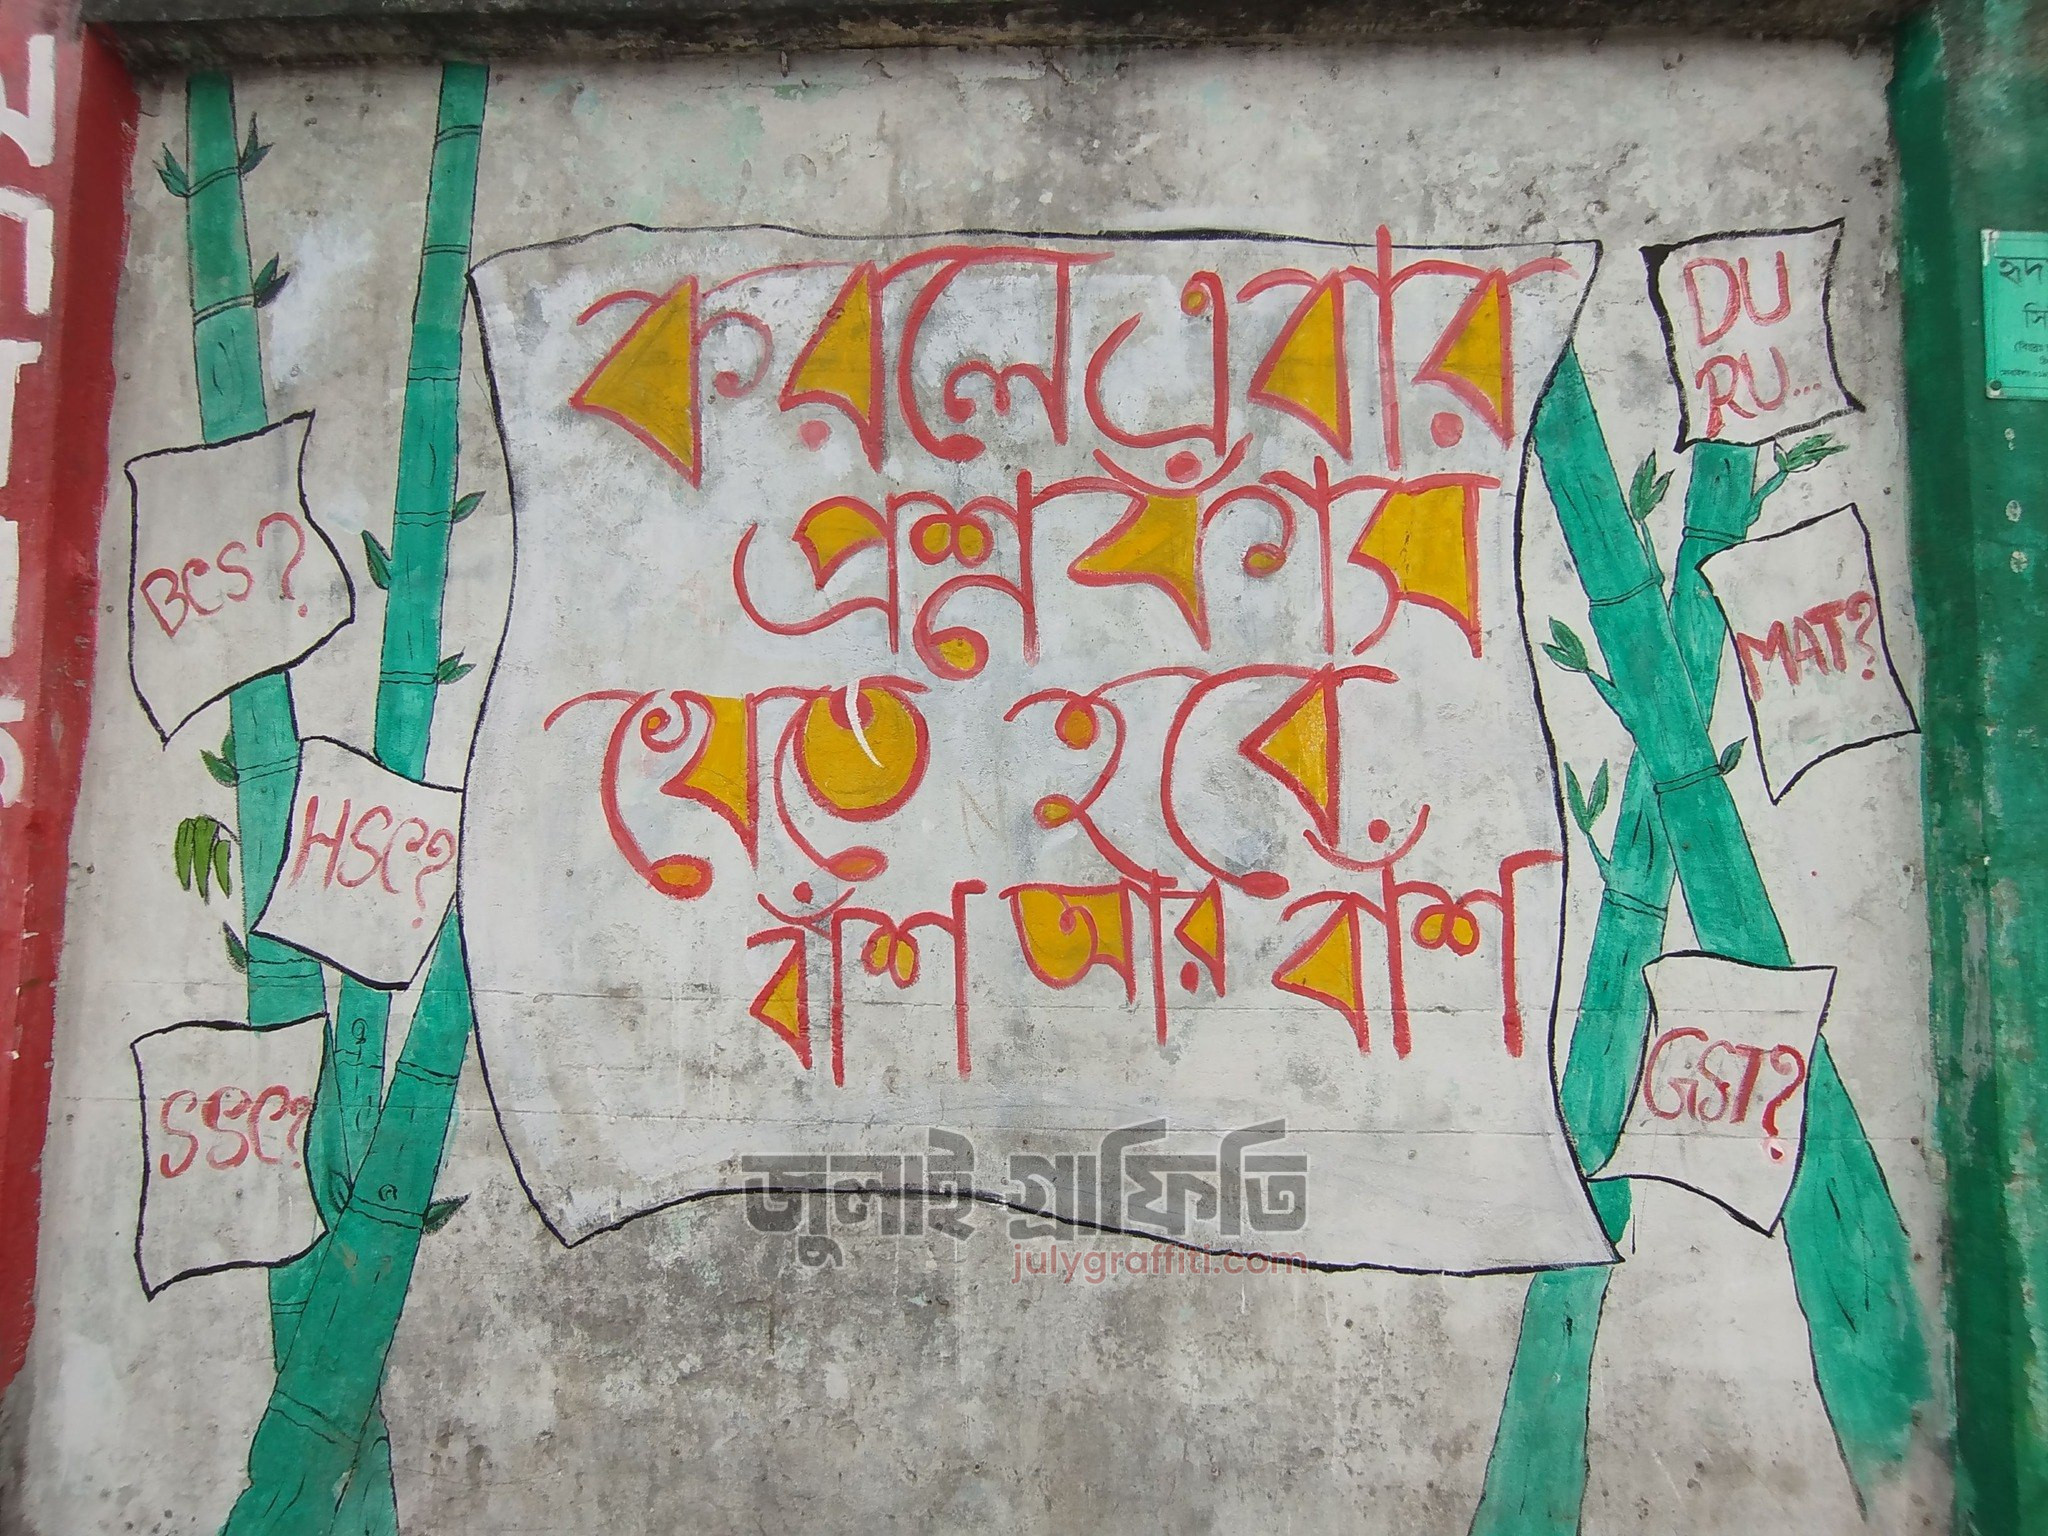 করলে এবার
প্রশ্ন ফাঁস
খেতে হবে
বাঁশ আর বাঁশ
BCS?
HSC?
SSC?
DU
RU...
MAT?
GST?
জুলাই গ্রাফিতি
julygraffiti.com